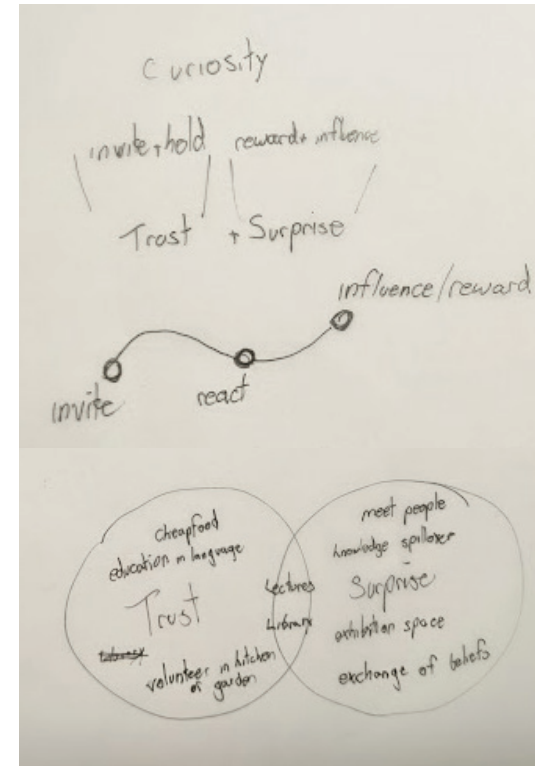 Curiosity
invite+hold reward+influence
Trust + Surprise
influence/reward
invite react
Cheapfood
education in language
Trust
volunteer in kitchen
or garden
Lectures
Library
meet people
knowledge spillover
Surprise
exhibition space
exchange of beliefs